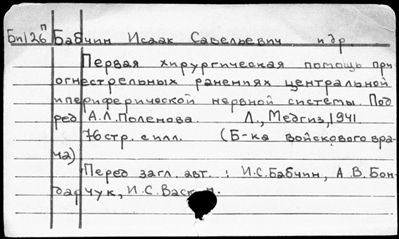 Бп126п Бабчин Исаак Савельевич и др.
Первая хирургическая помощь при
огнестрельных ранениях центральной
и периферической нервной системы. Под
ред. А.Л. Поленова. Л., Медгиз, 1941.
76 стр. с илл. (Б-ка войскового вра-
ча)
Перед загл. авт.: И.С. Бабчин, А.В. Бон-
дарчук, И.С.